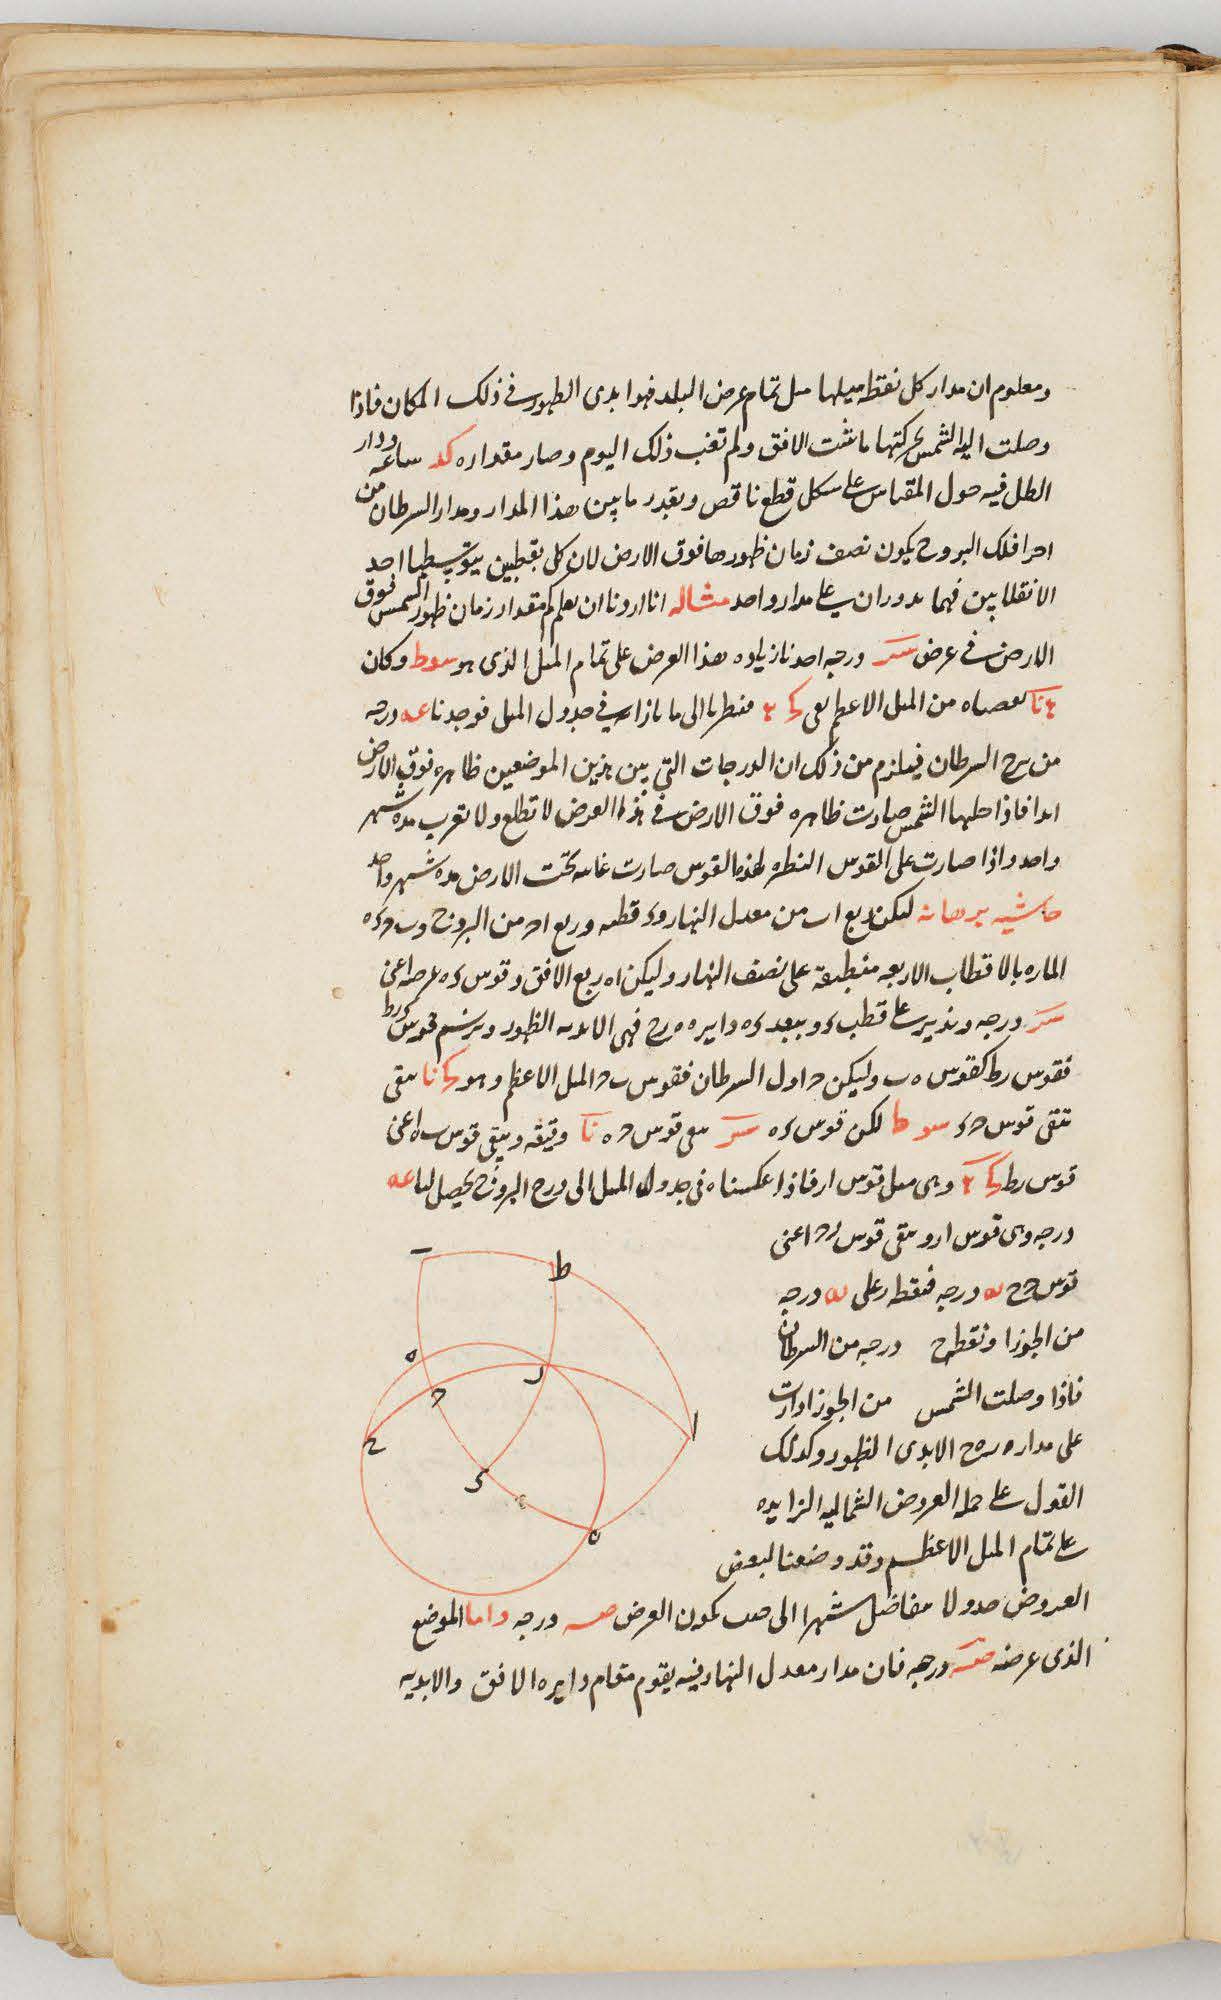 ومعلوم ان مدار كل نقطه ميلها مثل تمام عرض البلد فهو ابدى الظهور في ذلك المكان فاذا
وصلت اليه الشمس بحركتها ماست الافق ولم تغب ذلك اليوم وصار مقداره كد ساعه ودار
الظل فيه حول المقياس على شكل قطع ناقص وبقدر ما بين هذا المدار ومدار السرطان من
اجزا فلك البروج يكون نصف زمان ظهورها فوق الارض لان كل نقطتين يتوسطهما احد
الانقلابين فهما يدوران على مدار واحد مثاله انا اردنا ان نعلم كم مقدار زمان ظهور الشمس فوق
الارض في عرض سر درجه اخذنا زياده هذا العرض على تمام الميل الذى هو سوط وكان
نا نقصناه من الميل الاعظم بقى فنظرنا الى ما بازايه في جدول الميل فوجدنا عه درجه
من برج السرطان فيلزم من ذلك ان الدرجات التي بين هذين الموضعين ظاهره فوق الارض
ابدا فاذا حلها الشمس صارت ظاهره فوق الارض في هذا العرض لا تطلع ولا تغرب مده شهر
واحد واذا صارت على القوس النظيره لهذه القوس صارت غايبه تحت الارض مده شهر واحد
حاشيه برهانه ليكن ربع اب من معدل النهار وى قطبه وربع اح من البروج وب ح ى ه
الماره بالاقطاب الاربعه منطبقة على نصف النهار وليكن اه ربع الافق وقوس ى ه عرضه اعنى
سر درجه وندير على قطب ى وببعد ى ه دايره ه ر ح فهى الابديه الظهور ونرسم قوس ى ر ط
فقوس ر ط كقوس ه ب وليكن ح اول السرطان فقوس ب ح الميل الاعظم وهو نا يبقى
تبقى قوس ح ى سو ط لكن قوس ى ه سر يبقى قوس ح ه نا دقيقه ويبقى قوس ب ه اعنى
قوس ر ط وهى ميل قوس ا ر فاذا عكسناه في جدول الميل الى درج البروج يحصل لنا عه
درجه وهى قوس ا ر ويبقى قوس ر ح اعنى
قوس ح ح يه درجه فنقطه ر على يه درجه
من الجوزا ونقطه ح درجه من السرطان
فاذا وصلت الشمس من الجوزا دارت
على مدار ه ر ح الابدى الظهور وكذلك
القول على جمله العروض الشماليه الزايده
على تمام الميل الاعظم وقد وضعنا لبعض
العروض جدولا مفاضل شهرا الى حيث يكون العرض صه درجه واما الموضع
الذى عرضه صه درجه فان مدار معدل النهار فيه يقوم مقام دايره الافق والابديه
ب
ط
ه
ر
ح
ا
ح
ى
ه